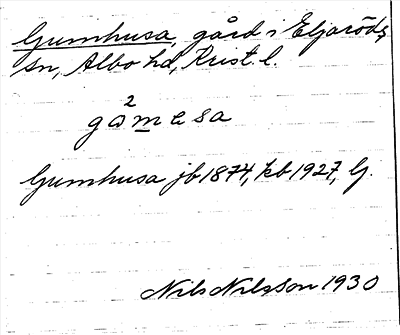 Gumhusa, gård i Eljaröds
sn, Albo hd, Krist. l.
gω²mesa
Gumhusa jb 1874, kb 1927, G.
Nils Nilsson 1930